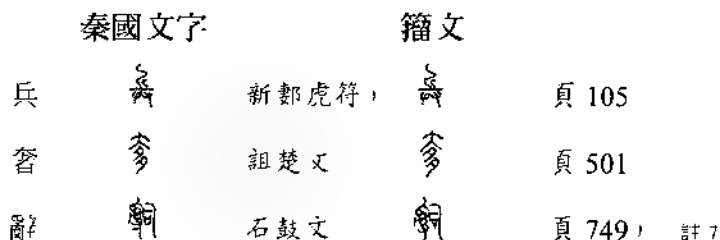 秦國文字 籀文
兵 新郪虎符, 頁 105
奢 詛楚文 頁 501
辭 石鼓文 頁 749, 註